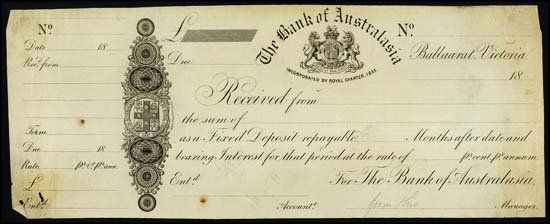 No.
Date 18
Rec. from
Term
Due 18
Rate pr. Ct. pr. ann.
£
Entd.
£
Due
The Bank of Australasia
INCORPORATED BY ROYAL CHARTER, 1835.
No.
Ballaarat, Victoria
18
Received from
the sum of
as a Fixed Deposit repayable Months after date and
bearing Interest for that period at the rate of pr. cent pr. annum.
Entd. For The Bank of Australasia,
Accountt. Manager.